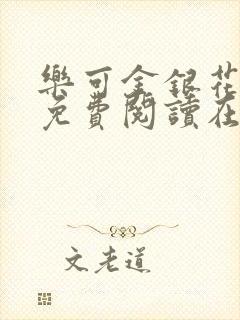 樂可金銀花
免費閱讀在
文老道